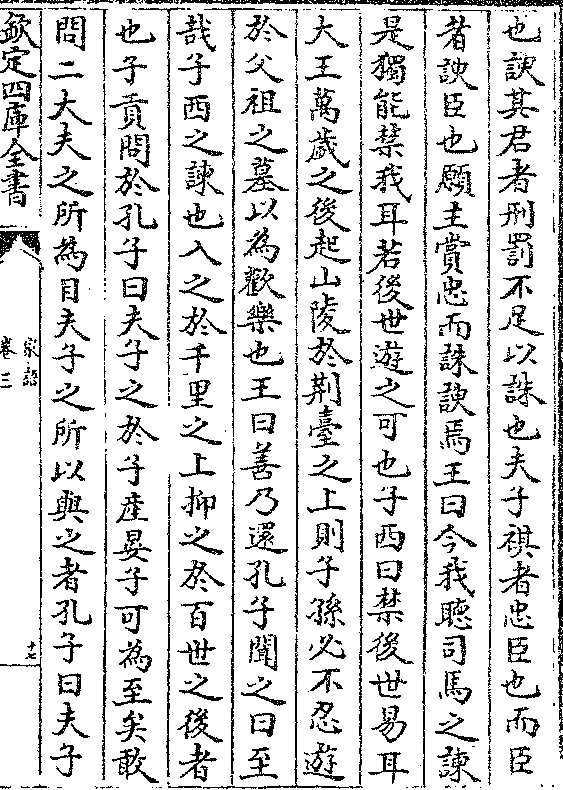 也諛其君者刑罰不足以誅也夫子祺者忠臣也而臣
者諛臣也願主賞忠而誅諛焉王曰今我聽司馬之諫
是獨能禁我耳若後世遊之可也子西曰禁後世易耳
大王萬歲之後起山陵於荆臺之上則子孫必不忍遊
於父祖之墓以為歡樂也王曰善乃還孔子聞之曰至
哉子西之諫也入之於千里之上抑之於百世之後者
也子貢問於孔子曰夫子之於子產晏子可為至矣敢
問二大夫之所為目夫子之所以與之者孔子曰夫子
欽定四庫全書
家語
卷三
十七